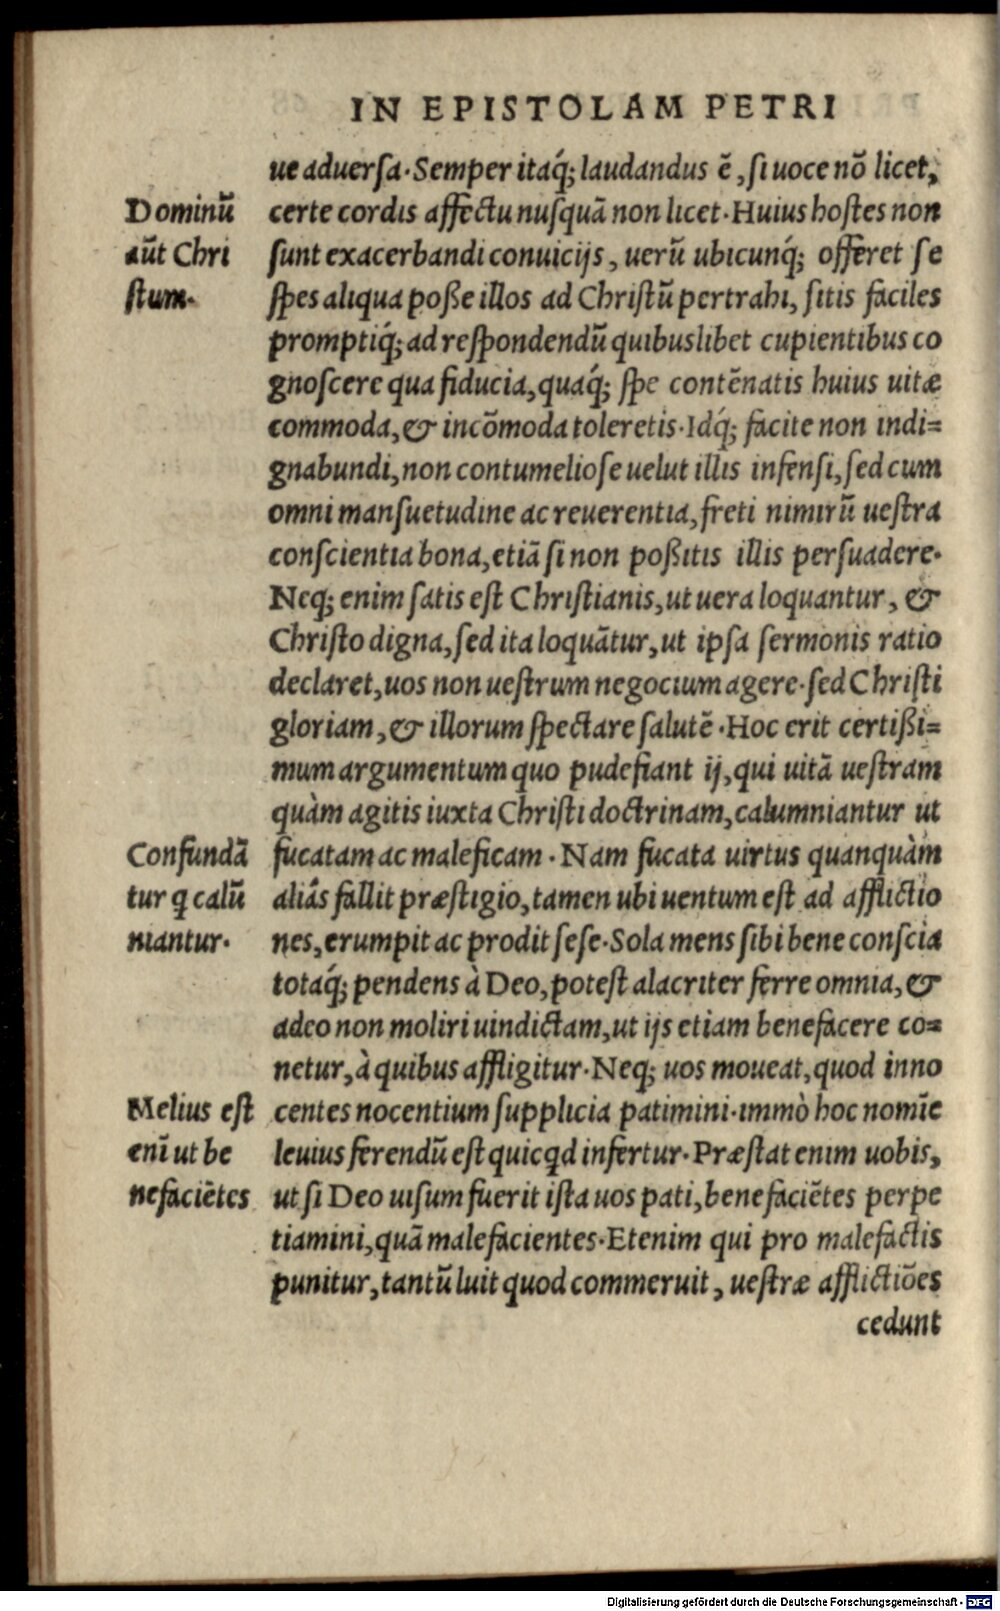 IN EPISTOLAM PETRI
ue aduersa. Semper itaq́; laudandus ē, si uoce nō licet,
Dominū
certe cordis affectu nusquā non licet. Huius hostes non
aūt Chri
sunt exacerbandi conuicijs, uerū ubicunq́; offeret se
stum.
spes aliqua poße illos ad Christū pertrahi, sitis faciles
promptiq́; ad respondendū quibuslibet cupientibus co
gnoscere qua fiducia, quaq́; spe contēnatis huius uitæ
commoda, & incōmoda toleretis. Idq́; facite non indi=
gnabundi, non contumeliose uelut illis infensi, sed cum
omni mansuetudine ac reuerentia, freti nimirū uestra
conscientia bona, etiā si non poßitis illis persuadere.
Neq; enim satis est Christianis, ut uera loquantur, &
Christo digna, sed ita loquātur, ut ipsa sermonis ratio
declaret, uos non uestrum negocium agere. sed Christi
gloriam, & illorum spectare salutē. Hoc erit certißi=
mum argumentum quo pudefiant ij, qui uitā uestram
quàm agitis iuxta Christi doctrinam, calumniantur ut
Confundā
fucatam ac maleficam. Nam fucata uirtus quanquàm
tur q calū
aliâs fallit præstigio, tamen ubi uentum est ad afflictio
niantur.
nes, erumpit ac prodit sese. Sola mens sibi bene conscia
totaq́; pendens à Deo, potest alacriter ferre omnia, &
adeo non moliri uindictam, ut ijs etiam benefacere co=
netur, à quibus affligitur. Neq; uos moueat, quod inno
Melius est
centes nocentium supplicia patimini. immò hoc nomīe
enī ut be
leuius ferendū est quicqd infertur. Præstat enim uobis,
nefaciētes
ut si Deo uisum fuerit ista uos pati, benefaciētes perpe
tiamini, quā malefacientes. Etenim qui pro malefactis
punitur, tantū luit quod commeruit, uestræ afflictiōes
cedunt
Digitalisierung gefördert durch die Deutsche Forschungsgemeinschaft - DFG